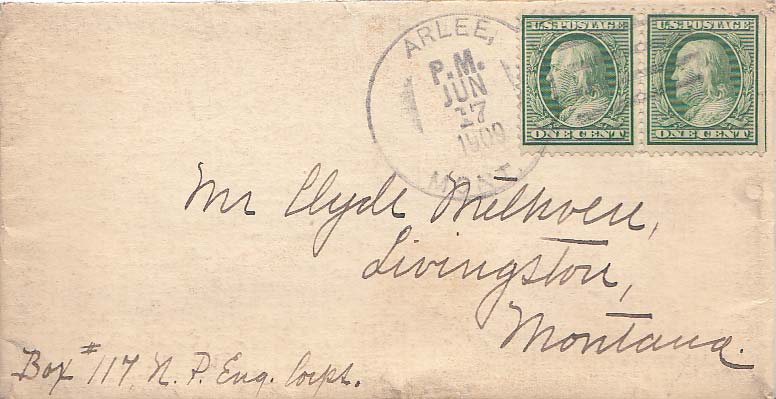 ARLEE,
P.M.
JUN
17
1909
MONT.
U.S. POSTAGE
ONE CENT
U.S. POSTAGE
ONE CENT
Mr Clyde
Livingston,
Montana.
Box #117 N. P. Eng.